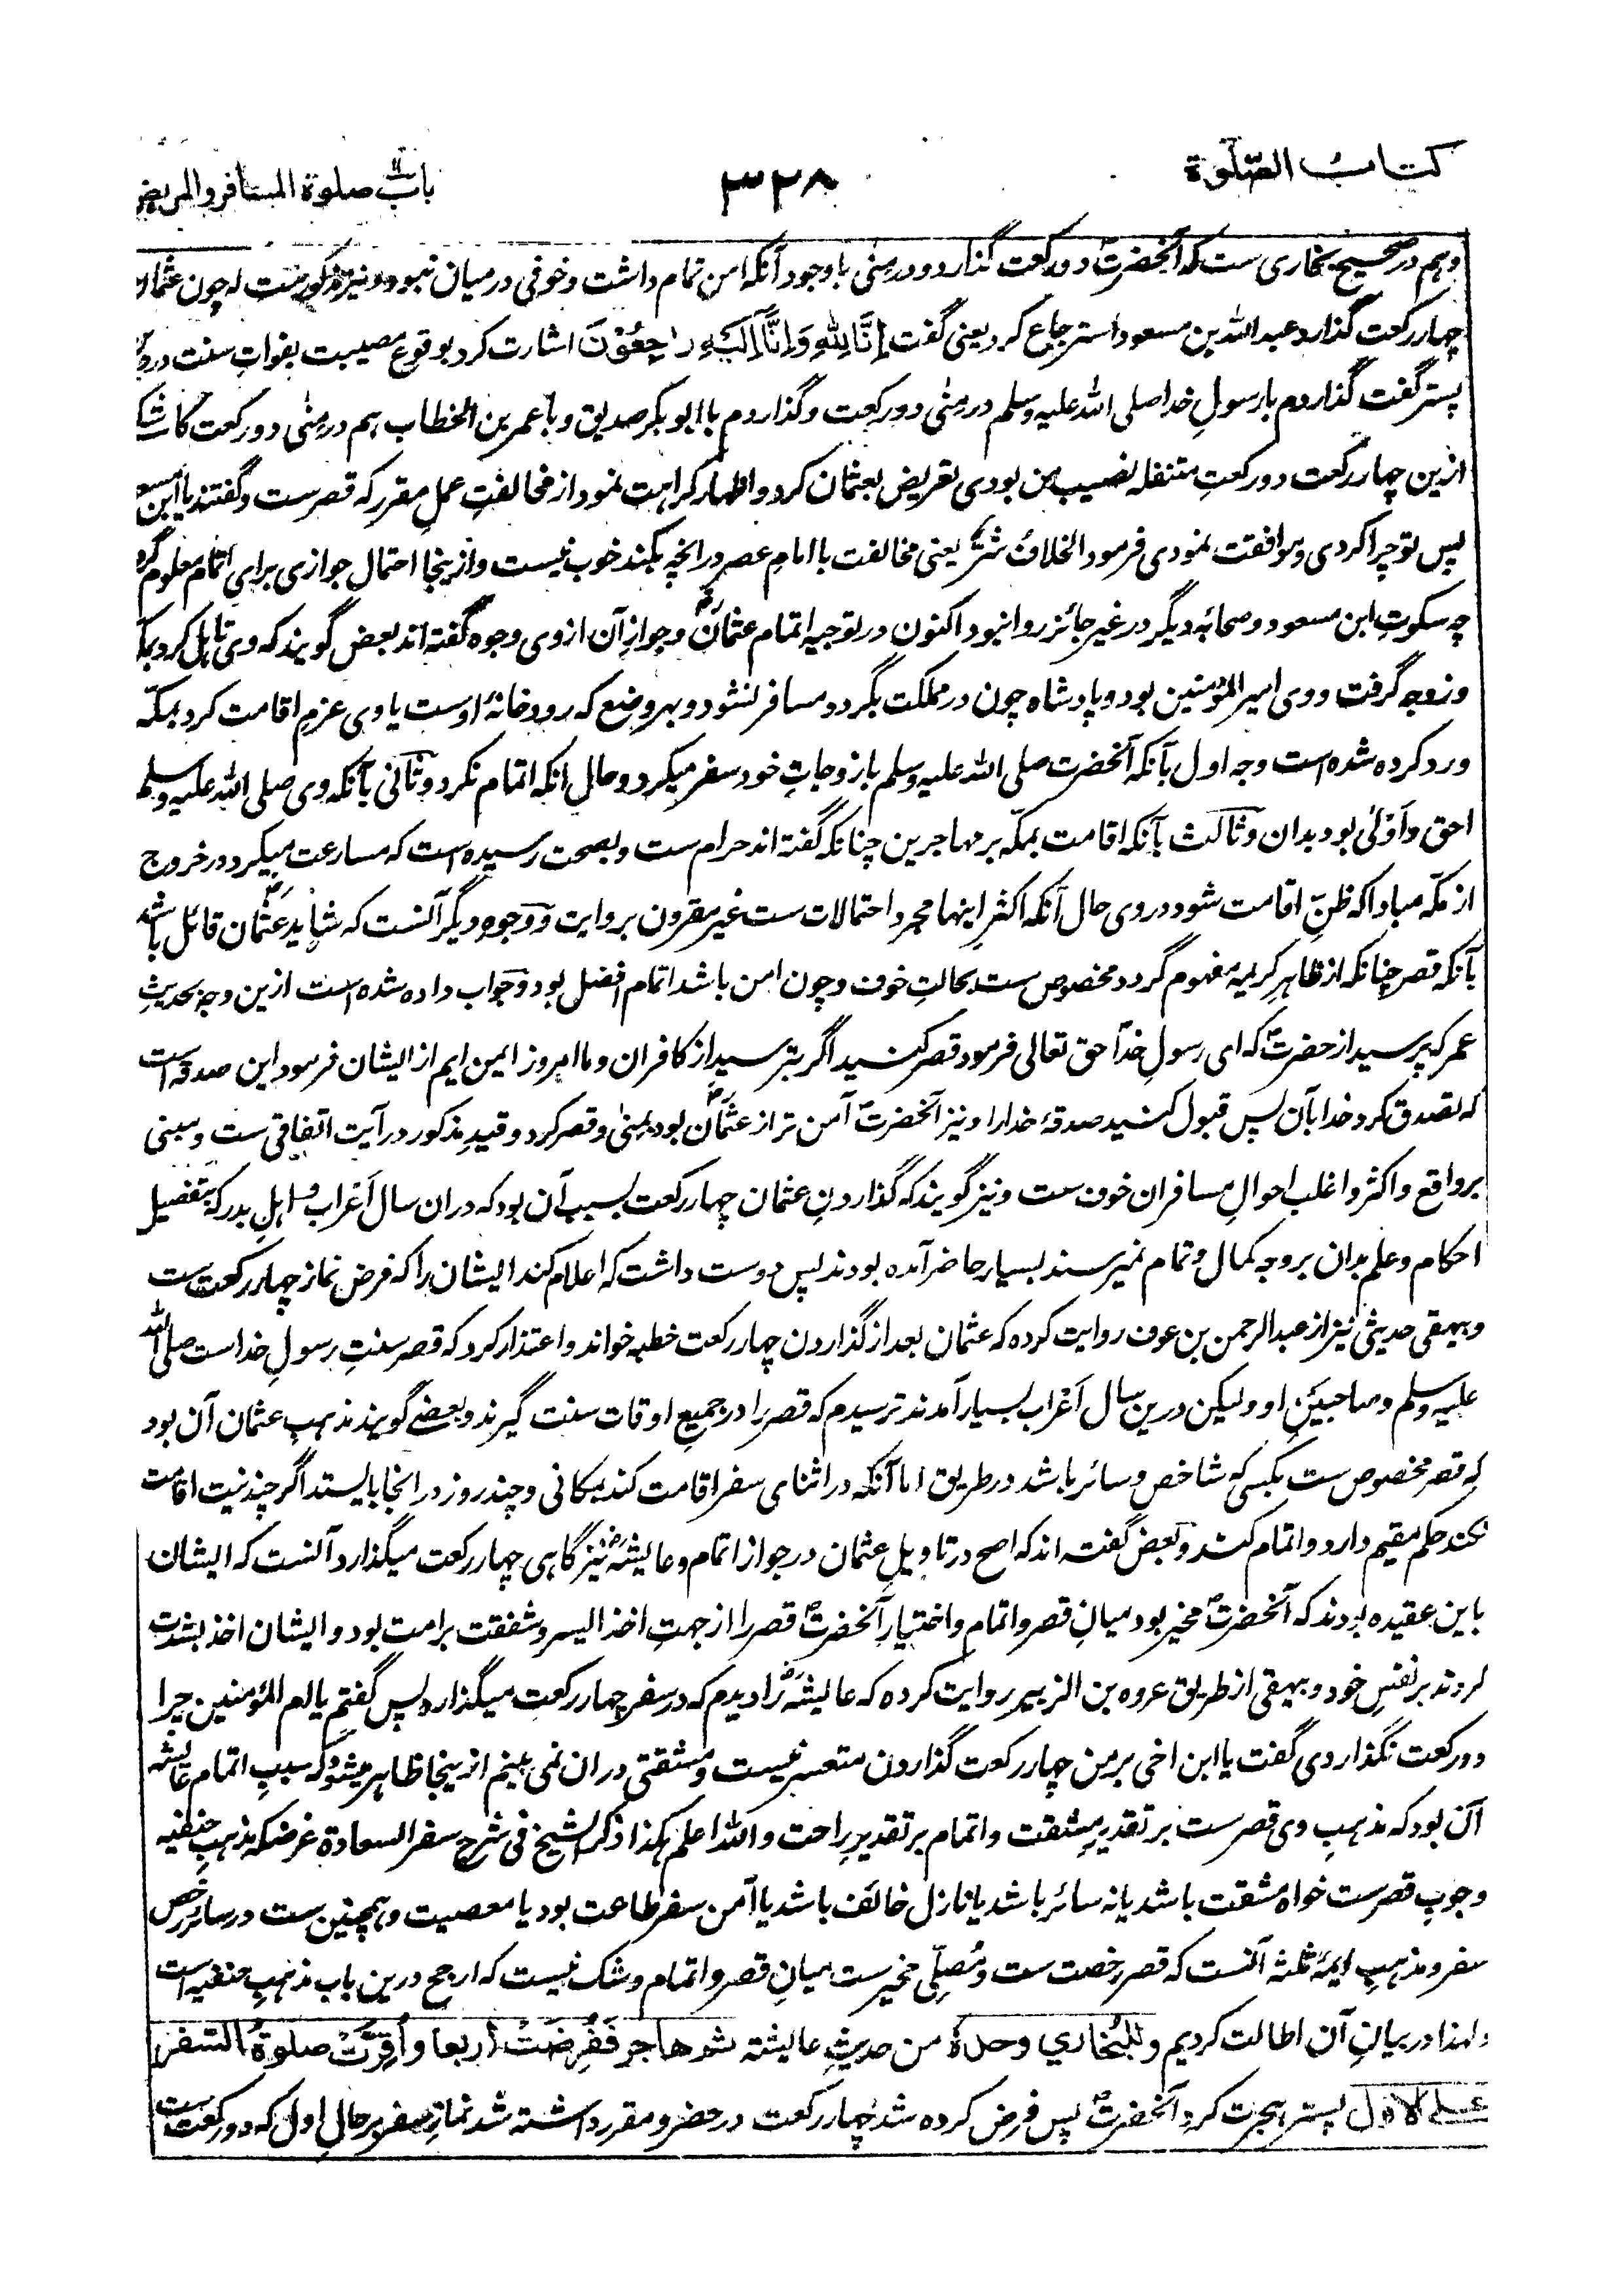 کتاب الصّلٰوة
۳۲۸
باب صلوة المسافر والمریض
وہم در صحیح بخاری ست که آنحضرتؐ دو رکعت گذارد و در منٰی باوجود آنکه امن تمام داشت و خوفی در میان نبود و نیز مذکورست که چون عثمان
چہار رکعت گذارد عبد الله بن مسعود استرجاع کرد یعنی گفت اِنَّا لِلّٰهِ وَاِنَّآ اِلَیْهِ رَاجِعُوْنَ اشارت کرد بوقوع مصیبت بفوات سنت در
پستر گفت گذاردم با رسولِ خدا صلی الله علیه وسلم در منٰی دو رکعت و گذاردم با ابو بکر صدیق و با عمر بن الخطاب ہم در منٰی دو رکعت کاشکے
ازین چہار رکعت دو رکعتِ متنفله نصیب من بودی تعریض بعثمان کرد و اظہار کراہت نمود از مخالفتِ عملِ مقرر که قصرست و گفتند یا ابن مسعود
پس تو چرا کردی و موافقت نمودی فرمود الخلافُ شرٌّ یعنی مخالفت با امامِ عصر در انچه بکند خوب نیست و ازینجا احتمال جوازی برای اتمام معلوم گردد
چه سکوتِ ابن مسعود و صحابۂ دیگر در غیر جائز روا نبود اکنون در توجیہ اتمام عثمانؓ و جوازِ آن از وی وجوه گفته اند بعض گویند که وی تاہل کرد بمکه
و زوجه گرفت و وی امیر المؤمنین بود و پادشاه چون در مملکت بگردد مسافر نشود و بہر وضع که رود خانۂ اوست یا وی عزم اقامت کرد بمکّه
و رد کرده شده است وجه اول بآنکه آنحضرت صلی الله علیه وسلم با زوجاتِ خود سفر میکرد و حال انکه اتمام نکرد و ثانی بآنکه وی صلی الله علیه وسلم
احق و اَوْلٰی بود بدان و ثالث بآنکه اقامت بمکّه بر مہاجرین چنانکه گفته اند حرام ست و بصحت رسیده است که مسارعت میکرد در خروج
از مکّه مبادا که ظنِّ اقامت شود در وی حال آنکه اکثرِ اینہا مجرد احتمالات ست غیر مقرون بروایت و وجوهِ دیگر آنست که شاید عثمانؓ قائل باشد
بآنکه قصر چنانکه از ظاہرِ کریمه مفہوم گردد مخصوص ست بحالتِ خوف و چون امن باشد اتمام افضل بود و جواب داده شده است ازین وجه بحدیثِ
عمر که پرسید از حضرتؐ که ای رسولِ خداؐ حق تعالی فرمود قصر کنید اگر بترسید از کافران و ما امروز ایمن ایم از ایشان فرمود این صدقه است
که تصدق کرد خدا بآن پس قبول کنید صدقۂ خدا را و نیز آنحضرتؐ آمن تر از عثمانؓ بود بمنٰی و قصر کرد و قیدِ مذکور در آیت اتفاقی ست و مبنی
بر واقع و اکثر و اغلب احوالِ مسافران خوف ست و نیز گویند که گذاردنِ عثمان چہار رکعت بسببِ آن بود که دران سال اَعْراب و اہلِ بدر که بتفصیل
احکام و علم بدان بر وجه کمال و تمام نمیرسند بسیار حاضر آمده بودند پس دوست داشت که اعلام کند ایشان را که فرض نماز چہار رکعت ست
و بیہقی حدیثی نیز از عبد الرحمن بن عوف روایت کرده که عثمان بعد از گذاردن چہار رکعت خطبه خواند و اعتذار کرد که قصر سنتِ رسولِ خداست صلی الله
علیه وسلم و صاحبَیْنِ او ولیکن درین سال اَعْراب بسیار آمدند ترسیدم که قصر را در جمیعِ اوقات سنت گیرند و بعضے گویند مذہبِ عثمان آن بود
که قصر مخصوص ست بکسی که شاخص و سائر باشد در طریق اما آنکه در اثنای سفر اقامت کند بمکانی و چند روز در انجا بایستد اگر چند نیت اقامت
نکند حکم مقیم دارد و اتمام کند و بعض گفته اند که اصح در تاویلِ عثمان در جواز اتمام و عایشهؓ نیز گاہی چہار رکعت میگذارد آنست که ایشان
باین عقیده بودند که آنحضرتؐ مخیر بود میانِ قصر و اتمام و اختیارِ آنحضرتؐ قصر را از جہتِ اخذ ایسر و شفقت بر امت بود و ایشان اخذ بشدت
کردند بر نفسِ خود و بیہقی از طریقِ عروه بن الزبیر روایت کرده که عایشهؓ را دیدم که در سفر چہار رکعت میگذارد پس گفتم یا ام المؤمنین چرا
دو رکعت نگذاردی گفت یا ابن اخی بر من چہار رکعت گذاردن متعسر نیست و مشقتی در ان نمی بینم ازینجا ظاہر میشود که سببِ اتمامِ عایشه
آن بود که مذہبِ وی قصرست بر تقدیرِ مشقت و اتمام بر تقدیرِ راحت والله اعلم ہکذا ذکر الشیخ فی شرح سفر السعادة غرضکه مذہبِ حنفیه
وجوبِ قصرست خواه مشقت باشد یا نه سائر باشد یا نازل خائف باشد یا آمن سفرِ طاعت بود یا معصیت و ہمچنین ست در سائر رخصِ
سفر و مذہبِ ایمۂ ثلثه آنست که قصر رخصت ست و مُصلّی مخیرست میانِ قصر و اتمام و شک نیست که ارجح درین باب مذہبِ حنفیه است
ولہذا در بیانِ آن اطالت کردیم وللبُخاري وحدهٗ من حدیثِ عایشة ثم هاجر فَفُرِضَتْ اربعا واُقِرَّتْ صلوةُ السّفر
علی الاول پستر ہجرت کرد آنحضرتؐ پس فرض کرده شد چہار رکعت در حضر و مقرر داشته شد نمازِ سفر بر حالِ اول که دو رکعت ست